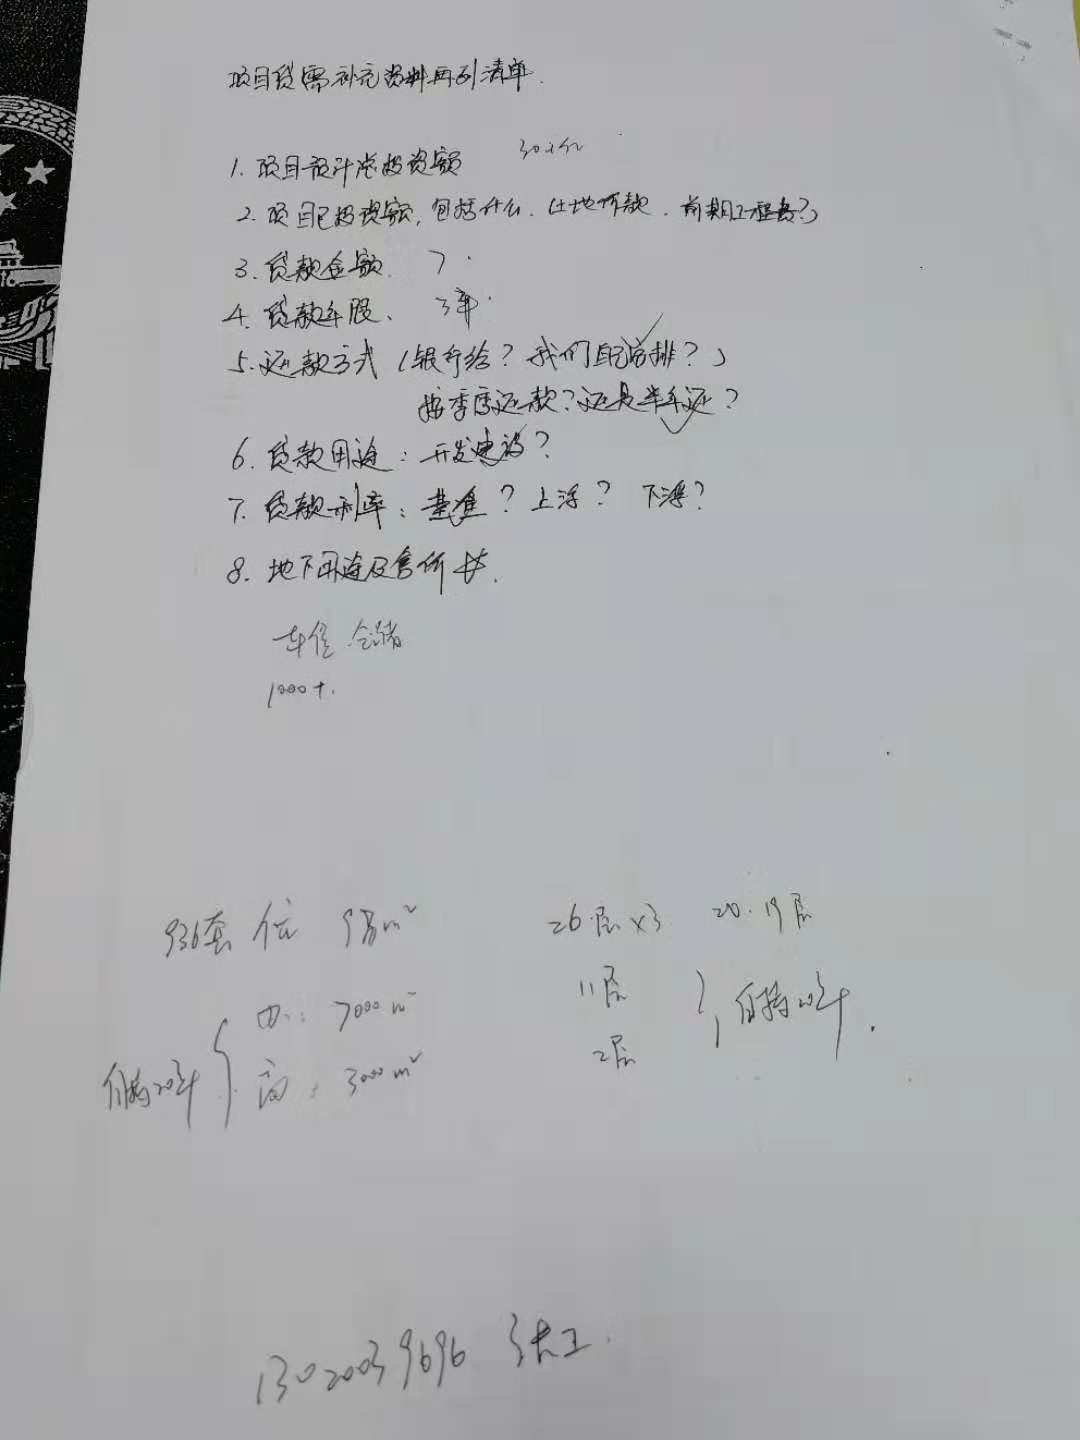 项目贷需补充资料再列清单.
1. 项目预计总投资额 30多亿
2. 项目已投资额, 包括什么. (土地价款. 前期工程费?)
3. 贷款金额. 7.
4. 贷款年限. 3年.
5. 还款方式 (银行给? 我们自己安排?) ✓
按季度还款? 还是半年还? ✓
6. 贷款用途: 开发建设?
7. 贷款利率: 基准? 上浮? 下浮?
8. 地下用途及售价
车位 仓储
1000+.
936套 住 9万m² 26层×3 20.19层
7000m² 11层
自持20年 { 商: 3000m² 2层 } 自持20年.
13020039696 张工.